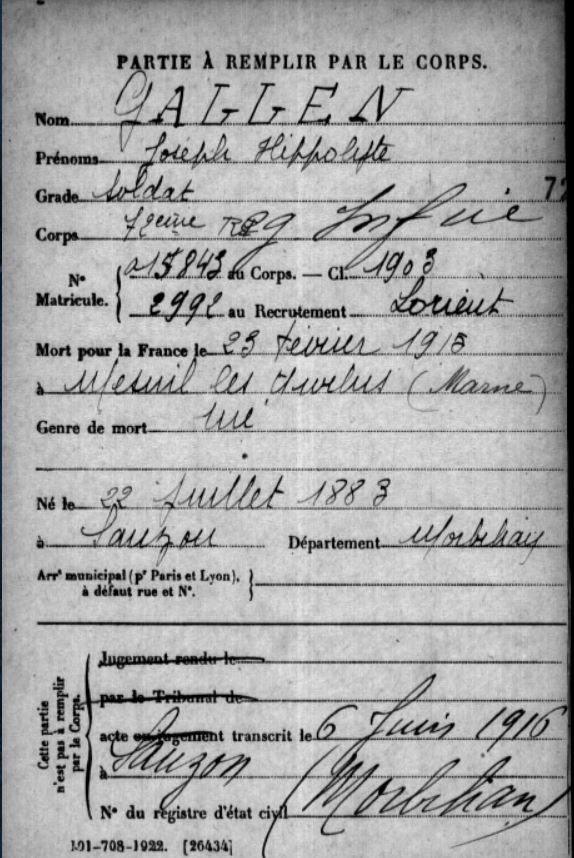 PARTIE À REMPLIR PAR LE CORPS.
Nom GALLEN
Prénoms Joseph Hippolyte
Grade Soldat
72
Corps 72eme Reg Infrie
N° Matricule. 015843 au Corps. — Cl. 1903
2992 au Recrutement Lorient
Mort pour la France le 23 février 1915
à Mesnil les Hurlus (Marne)
Genre de mort tué
Né le 22 Juillet 1883
à Sauzon Département Morbihan
Arrt municipal (pr Paris et Lyon),
à défaut rue et N°.
Cette partie n'est pas à remplir par le Corps.
Jugement rendu le
par le Tribunal de
acte ou jugement transcrit le 6 Juin 1916
à Sauzon
N° du registre d'état civil (Morbihan)
101-708-1922. [26434]